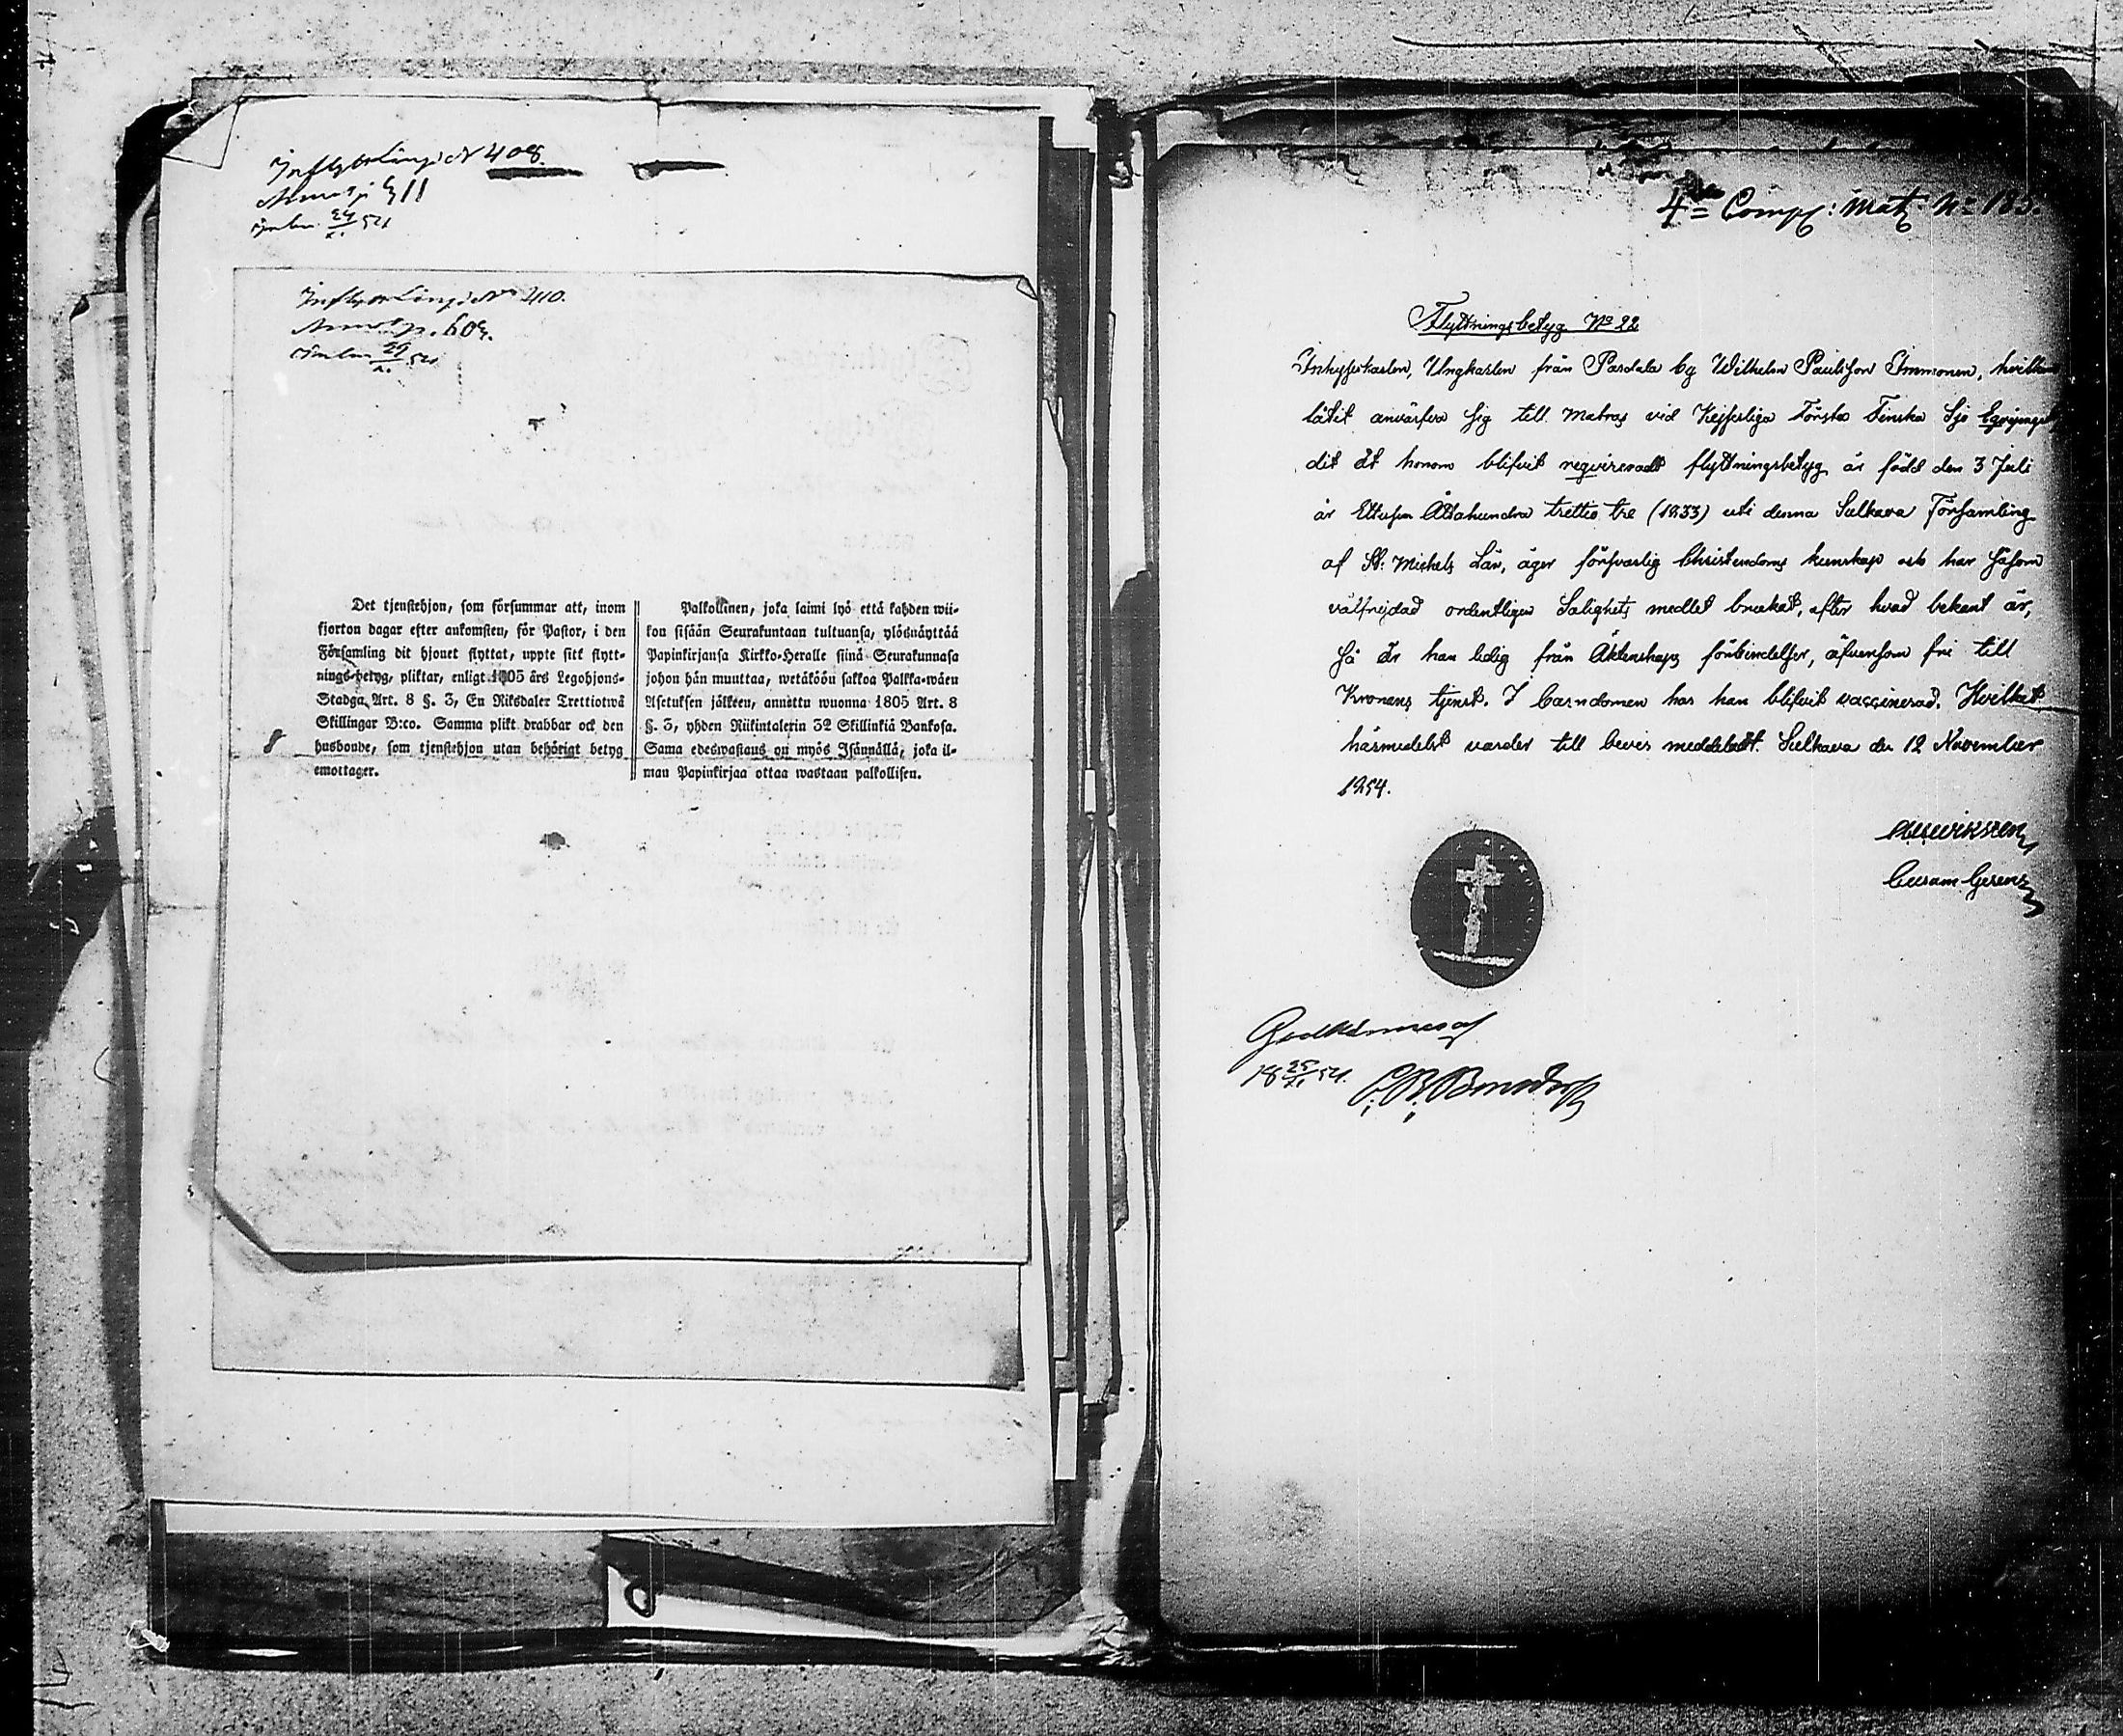 Inflyttn Längd N 408.
611
inlm 24/XI 54
Inflyttn Längd No 410.
p. 602.
inlm 29/XI 54
Det tjenstehjon, som försummar att, inom
fjorton dagar efter ankomsten, för Pastor, i den
Församling dit hjonet flyttat, uppte sitt flytt-
nings-betyg, pliktar, enligt 1805 års Legohjons-
Stadga, Art. 8 §. 3, En Riksdaler Trettiotwå
Skillingar B:co. Samma plikt drabbar ock den
husbonde, som tjenstehjon utan behörigt betyg
emottager.
Palkollinen, joka laimi lyö että kahden wii-
kon sisään Seurakuntaan tultuansa, ylösnäyttää
Papinkirjansa Kirkko-Heralle siinä Seurakunnasa
johon hän muuttaa, wetäköön sakkoa Palkka-wäen
Asetuksen jälkeen, annettu wuonna 1805 Art. 8
§. 3, yhden Riikintalerin 32 Skillinkiä Bankosa.
Sama edeswastaus on myös Isännällä, joka il-
man Papinkirjaa ottaa wastaan palkollisen.
8
4de Comp: Mats No 185.
Flyttningsbetyg No 22
Inhyseskarlen, Ungkarlen från Pasdala by Wilhelm Paulsson Immonen, hvilken
låtit anvärfva sig till Matros vid Kejserliga Första Finska Sjö Eqvipaget
dit åt honom blifvit reqvireradt flyttningsbetyg är född den 3 Juli
år Ettusen Åttahundra trettio tre (1833) uti denna Sulkava Församling
af St: Michels Län, äger försvarlig Christendoms kunskap och har såsom
välfrejdad ordentligen Salighets medlet brukat, efter hvad bekant är,
så är han ledig från Äktenskaps förbindelser, äfvensom fri till
Kronans tjenst. I barndomen har han blifvit vaccinerad. Hvilket
härmedelst varder till bevis meddeladt. Sulkava den 12 November
1854.
Curam Gerens
Godkännes af
18 25/XI 54.